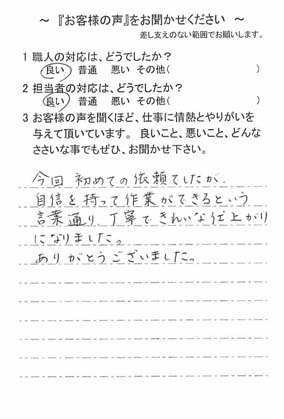 ～ 『お客様の声』をお聞かせください ～
差し支えのない範囲でお願いします。
1 職人の対応は、どうでしたか？
良い 普通 悪い その他( )
2 担当者の対応は、どうでしたか？
良い 普通 悪い その他( )
3 お客様の声を聞くほど、仕事に情熱とやりがいを
与えて頂いています。 良いこと、悪いこと、どんな
ささいな事でもぜひ、お聞かせ下さい。
今回 初めての依頼でしたが、
自信を持って作業ができるという
言葉通り、丁寧できれいな仕上がり
になりました。
ありがとうございました。